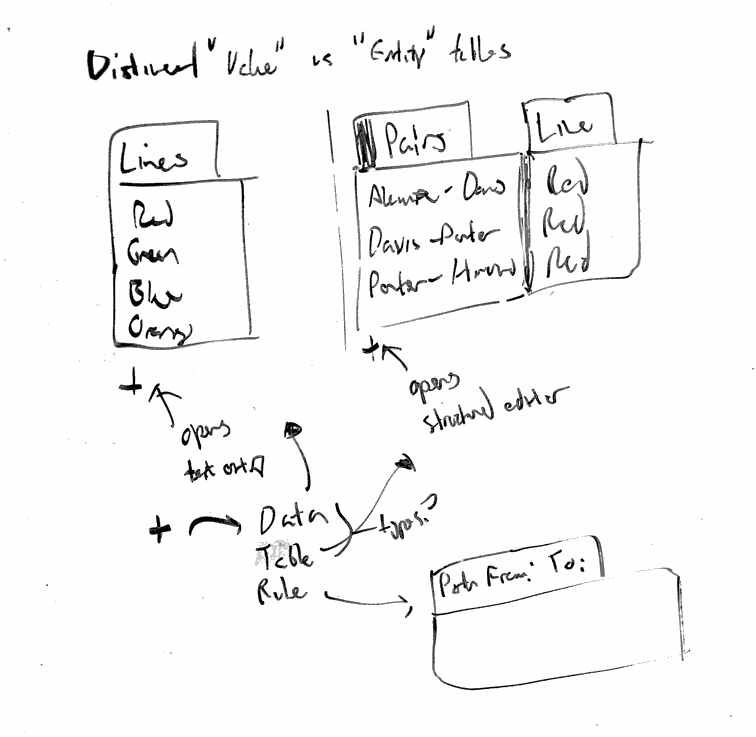 Distinct "Value" vs "Entity" tables
Lines
Red
Green
Blue
Orange
+
opens
text entry
Pairs
Line
Alewife - Davis
Red
Davis - Porter
Red
Porter - Harvard
Red
+
opens
structured editor
+
Data
Table
Rule
types?
Path From: To: